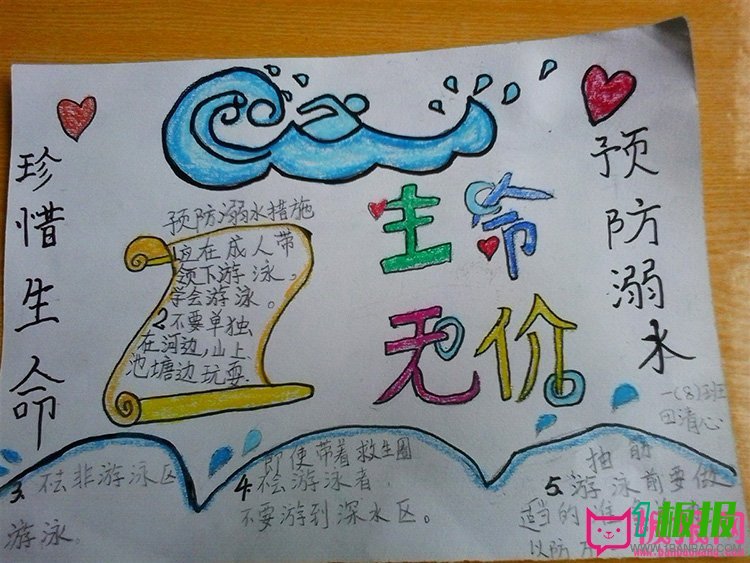 珍惜生命
预防溺水
生命
无价
预防溺水措施
1应在成人带
领下游泳。
学会游泳。
2不要单独
在河边,山上
池塘边玩耍.
一(8)班
田清心
3.不去非游泳区
游泳。
4.即使带着救生圈
不会游泳者,
不要游到深水区。
5.
游泳前要做
适当的
以防
板报网
1板报
WWW.1BANBAO.COM